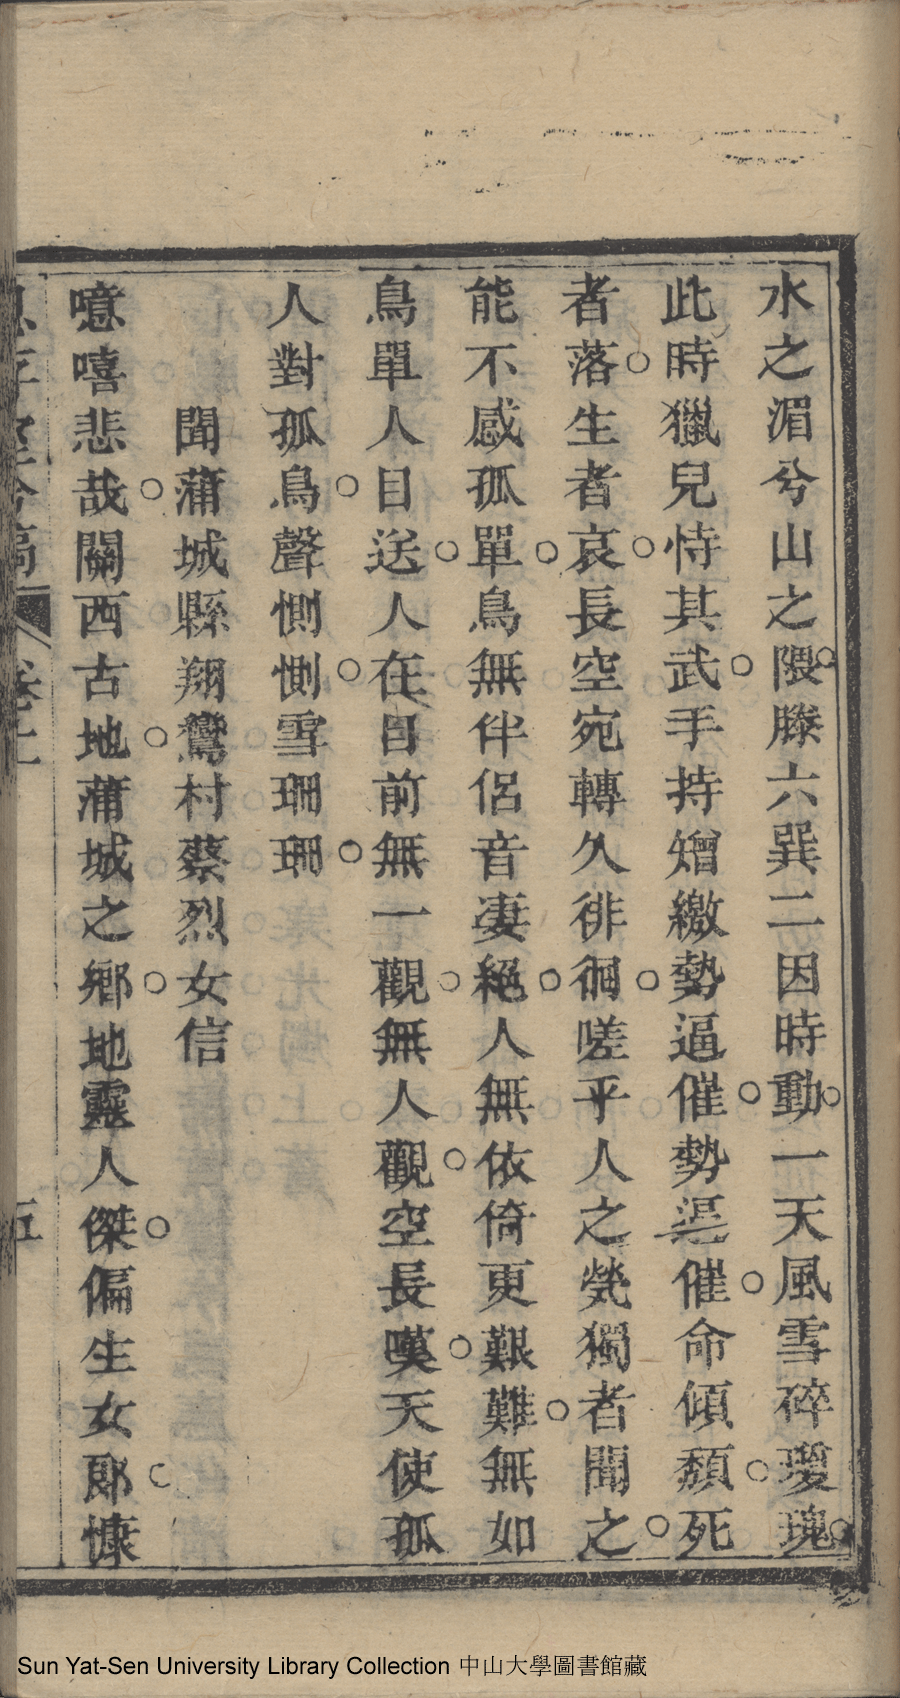 水之湄兮山之隈。滕六巽二因時動。一天風雪碎瓊瑰。
此時獵兒恃其武。手持矰繳勢逼催。勢逼催。命傾頽。死
者落。生者哀。長空宛轉久徘徊。嗟乎人之煢獨者聞之。
能不感。孤單鳥無伴侶音凄絕。人無依倚更艱難。無如
鳥單人目送。人在目前無一觀。無人觀。空長嘆。天使孤
人對孤鳥。聲惻惻。雪珊珊。
聞蒲城縣翔鸞村蔡烈女信
噫嘻悲哉。關西古地。蒲城之鄉。地靈人傑。偏生女郎。慷
五
Sun Yat-Sen University Library Collection 中山大學圖書館藏